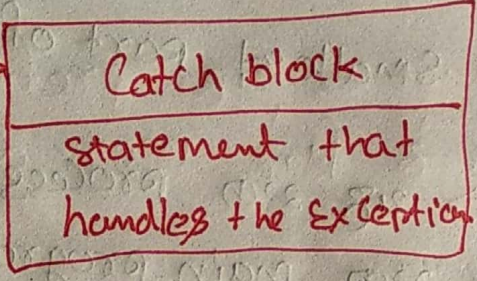 Catch block
statement that
handles the Exception